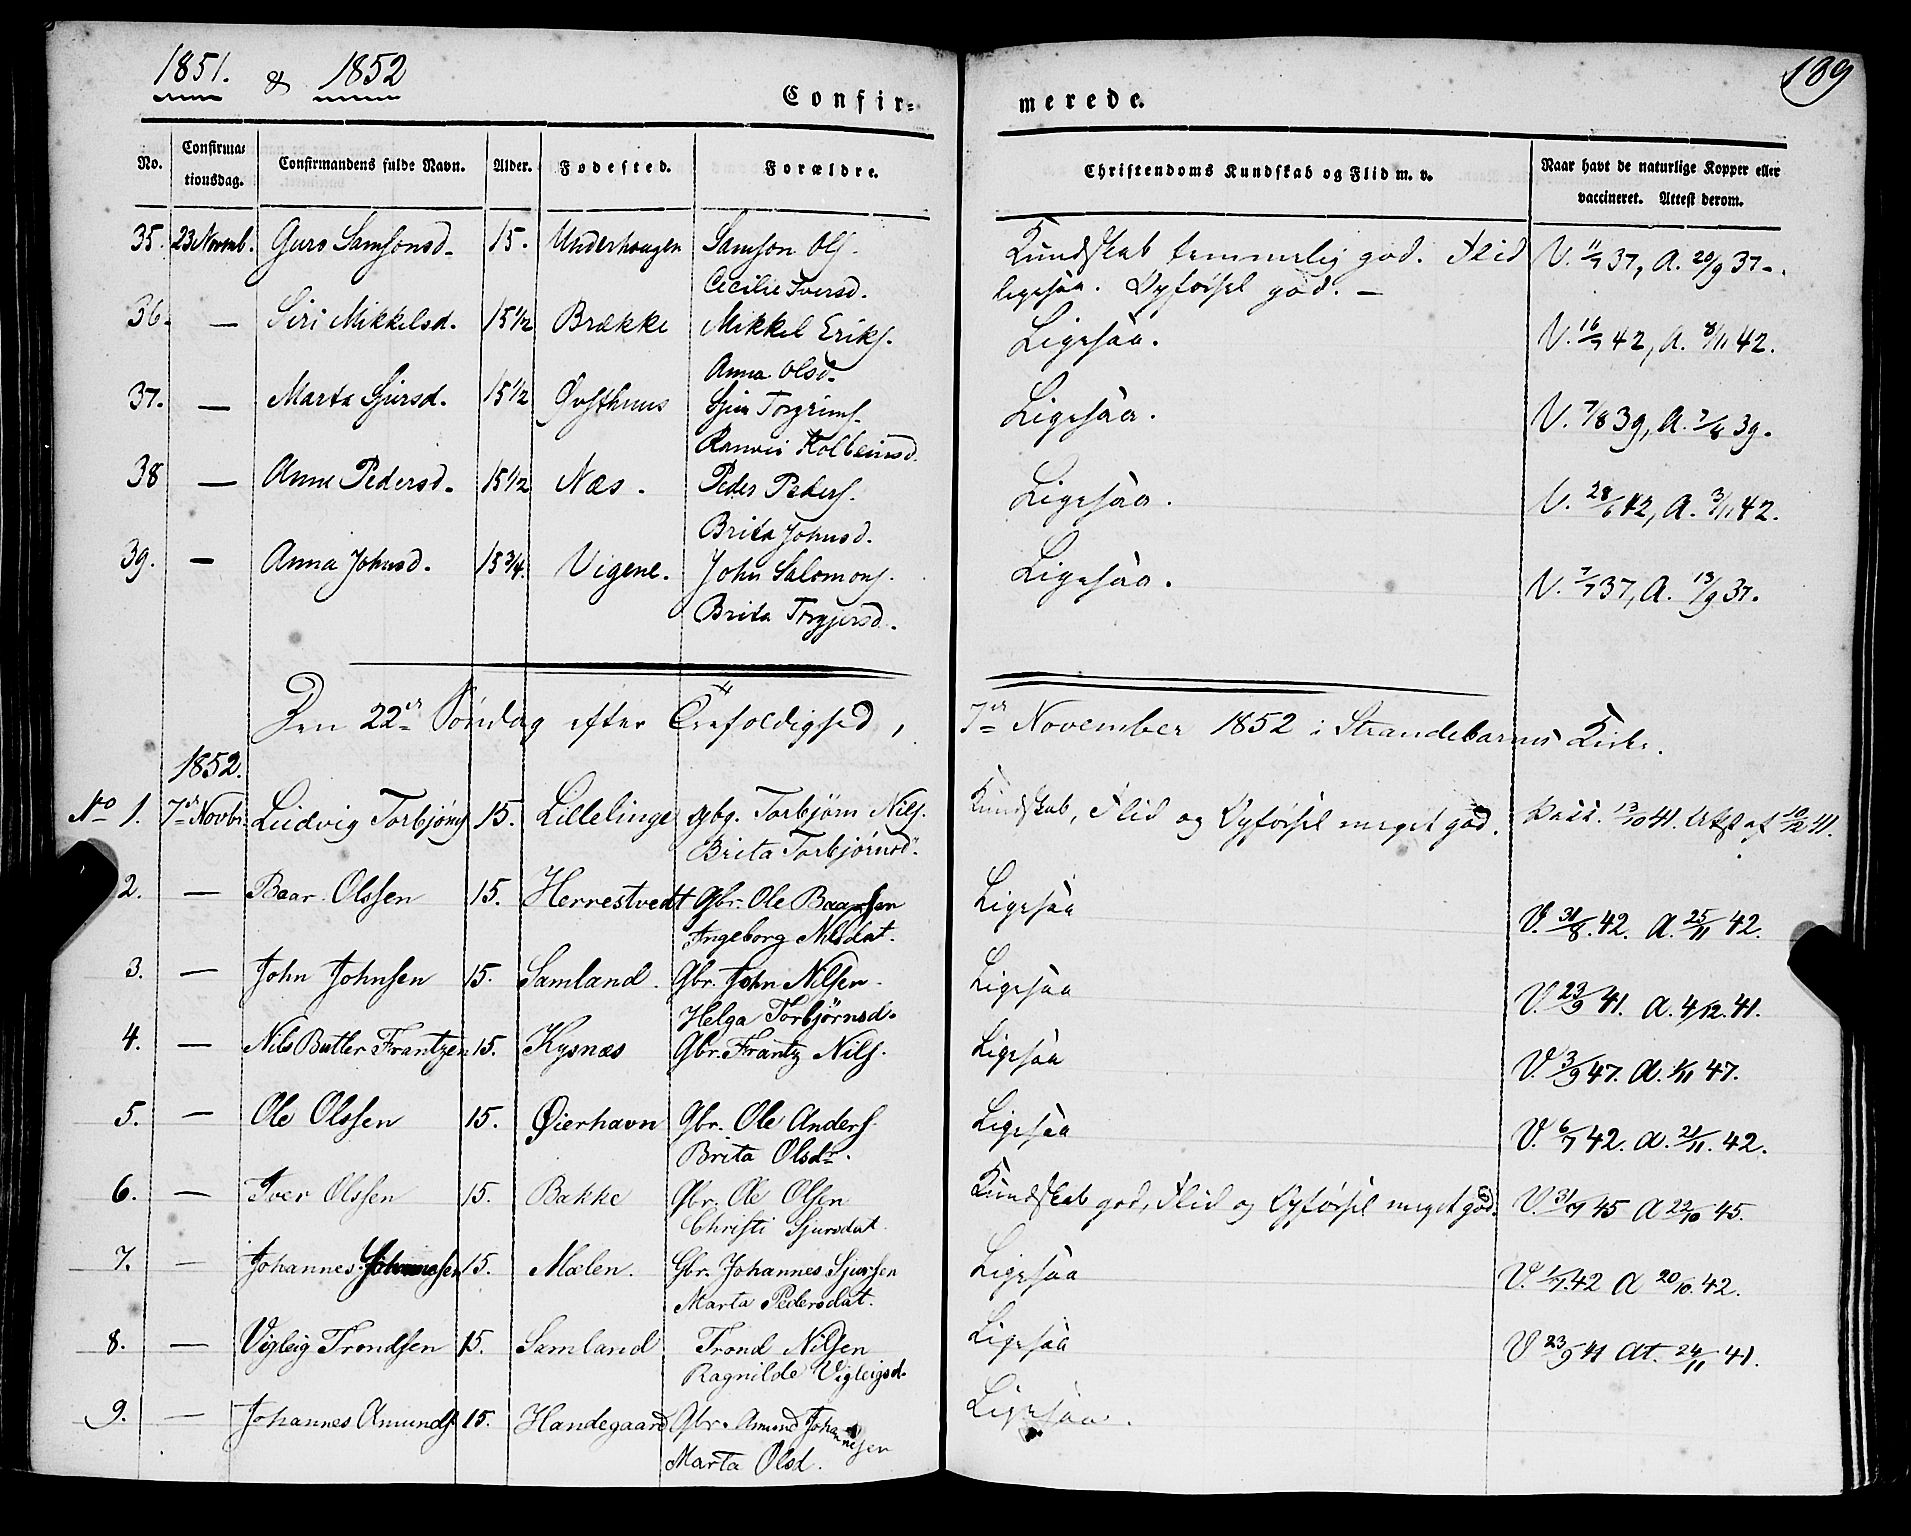 1851. & 1852
189
Confir=
merede.
No.
Confirma=
tionsdag.
Confirmandens fulde Navn.
Alder.
Fødested.
Forældre.
Christendoms Kundskab og Flid m. v.
Naar havt de naturlige Kopper eller
vaccineret. Attest derom.
35. 23 Novemb. Guro Samsonsd. 15. Underhougen Samson Ols. Kundskab temmelig god. Flid V. 11/7 37, A. 20/9 37.
Cecilie Iversd. ligesaa. Opførsel god. —
36. — Siri Mikkelsd. 15 1/2 Brække Mikkel Eriks. Ligesaa. V. 16/7 42, A. 8/11 42.
Anna Olsd.
37. — Marta Sjursd. 15 1/2 Øvsthuus Sjur Torgrims. Ligesaa. V. 7/8 39, A. 39.
Ranvei Kolbeinsd.
38 — Anne Pedersd. 15 1/2 Næs. Peder Peders. Ligesaa. V. 28/6 42, A. 3/11 42.
Brita Johnsd.
39. — Anna Johnsd. 15 3/4. Vigene. John Salomons. Ligesaa. V. 7/7 37, A. 13/9 37.
Brita Torgjersd.
Den 22de Søndag efter Trefoldighed, 7de November 1852 i Strandebarms Kirke.
1852.
No 1. 7de Novbr. Ludvig Torbjörns 15. Lillelinge gbg. Torbjørn Nils. Kundskab, Flid og Opførsel meget god. Vacc. 13/10 41. Attest af 10/12 41.
Brita Torbjörnsd.
2. — Baar Olssen 15. Herrestvedt Gbr. Ole Baarsen Ligesaa V. 31/8. 42. A. 25/11 42.
Ingeborg Nilsdat.
3. — John Johnsen 15. Samland. Gbr. John Nilsen. Ligesaa V. 23/9 41. A. 4/12. 41.
Helga Torbjørnsd.
4. — Nils Butler Frantzen 15. Kysnæs Gbr. Frantz Nils. Ligesaa V. 3/9 47. A. 1/11 47.
5. — Ole Olssen 15. Øierhavn Gbr. Ole Anders. Ligesaa V. 6/7 42. A. 21/11. 42.
Brita Olsdr.
6. — Iver Olssen 15. Bakke Gbr. Ole Olsen Kundskab god, Flid og Opførsel meget god. V. 31/7 45 A 22/10 45.
Christi Sjursdat.
7. — Johannes Johannesen 15. Mælen. Gbr. Johannes Sjursen Ligesaa V. 1/7. 42 A 20/10. 42.
Marta Pedersdat.
8. — Vigleig Trondsen 15. Samland Trond Nilsen Ligesaa V 23/9 41 At. 24/11 41.
Ragnilde Vigleigsd.
9. — Johannes Amunds 15. Handegaard Gbr. Amund Johannesen Ligesaa.
Marta Olsd.